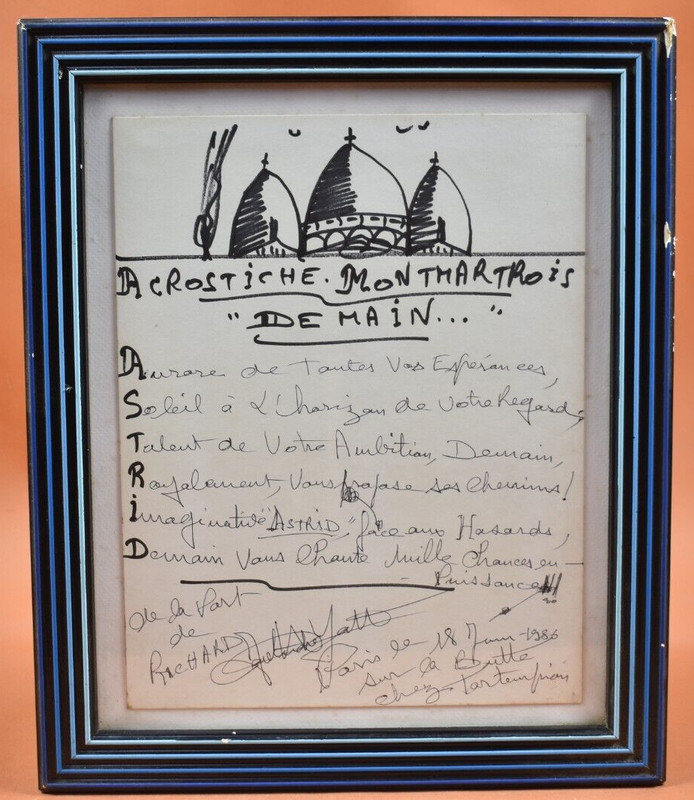 ACROSTICHE. MONTMARTROIS
"DEMAIN..."
Aurore de Toutes Vos Espérances,
Soleil à L'horizon de Votre Regard,
Talent de Votre Ambition, Demain,
Royalement, Vous propose ses Chemins!
imaginative "ASTRID", face aux Hasards,
Demain Vous Chante Mille Chances en-
Puissance!!!
de la Part
de
RICHARD
Paris le 18 Juin-1986
sur la Butte
chez